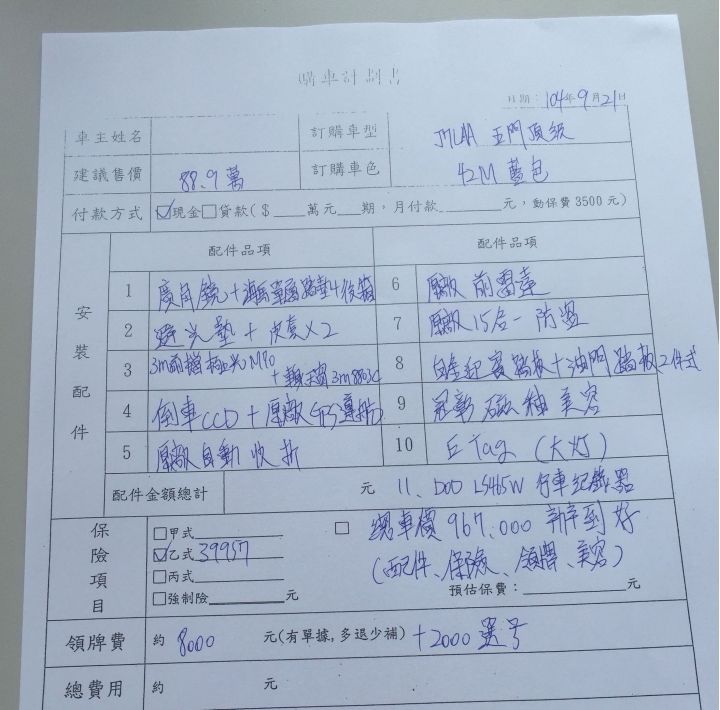 購車計劃書
日期：104年9月21日
車主姓名 訂購車型 JMLAA 五門頂級
建議售價 88.9萬 訂購車色 42M 藍色
付款方式 ☑現金□貸款($____萬元___期，月付款________元，動保費3500元)
安裝配件
配件品項 配件品項
1 廣角鏡+海馬單面踏墊+後箱 6 原廠前雷達
2 避光墊+皮套X2 7 原廠15合一防盜
3 3m前擋極光M90 + 3m8803C 8 白金起賽踏板+油門踏板2件式
4 倒車CCD+原廠GPS導航 9 冠彰磁釉美容
5 原廠自動收折 10 E Tag (大灯)
配件金額總計 元 11、DOD LS465W 行車紀錄器
保險項目
□甲式________
☑乙式39957
□丙式________
□強制險________元
□ 總車價967,000辦到好
(配件、保險、領牌、美容)
預估保費：________元
領牌費 約8000 元(有單據,多退少補) +2000選号
總費用 約 元